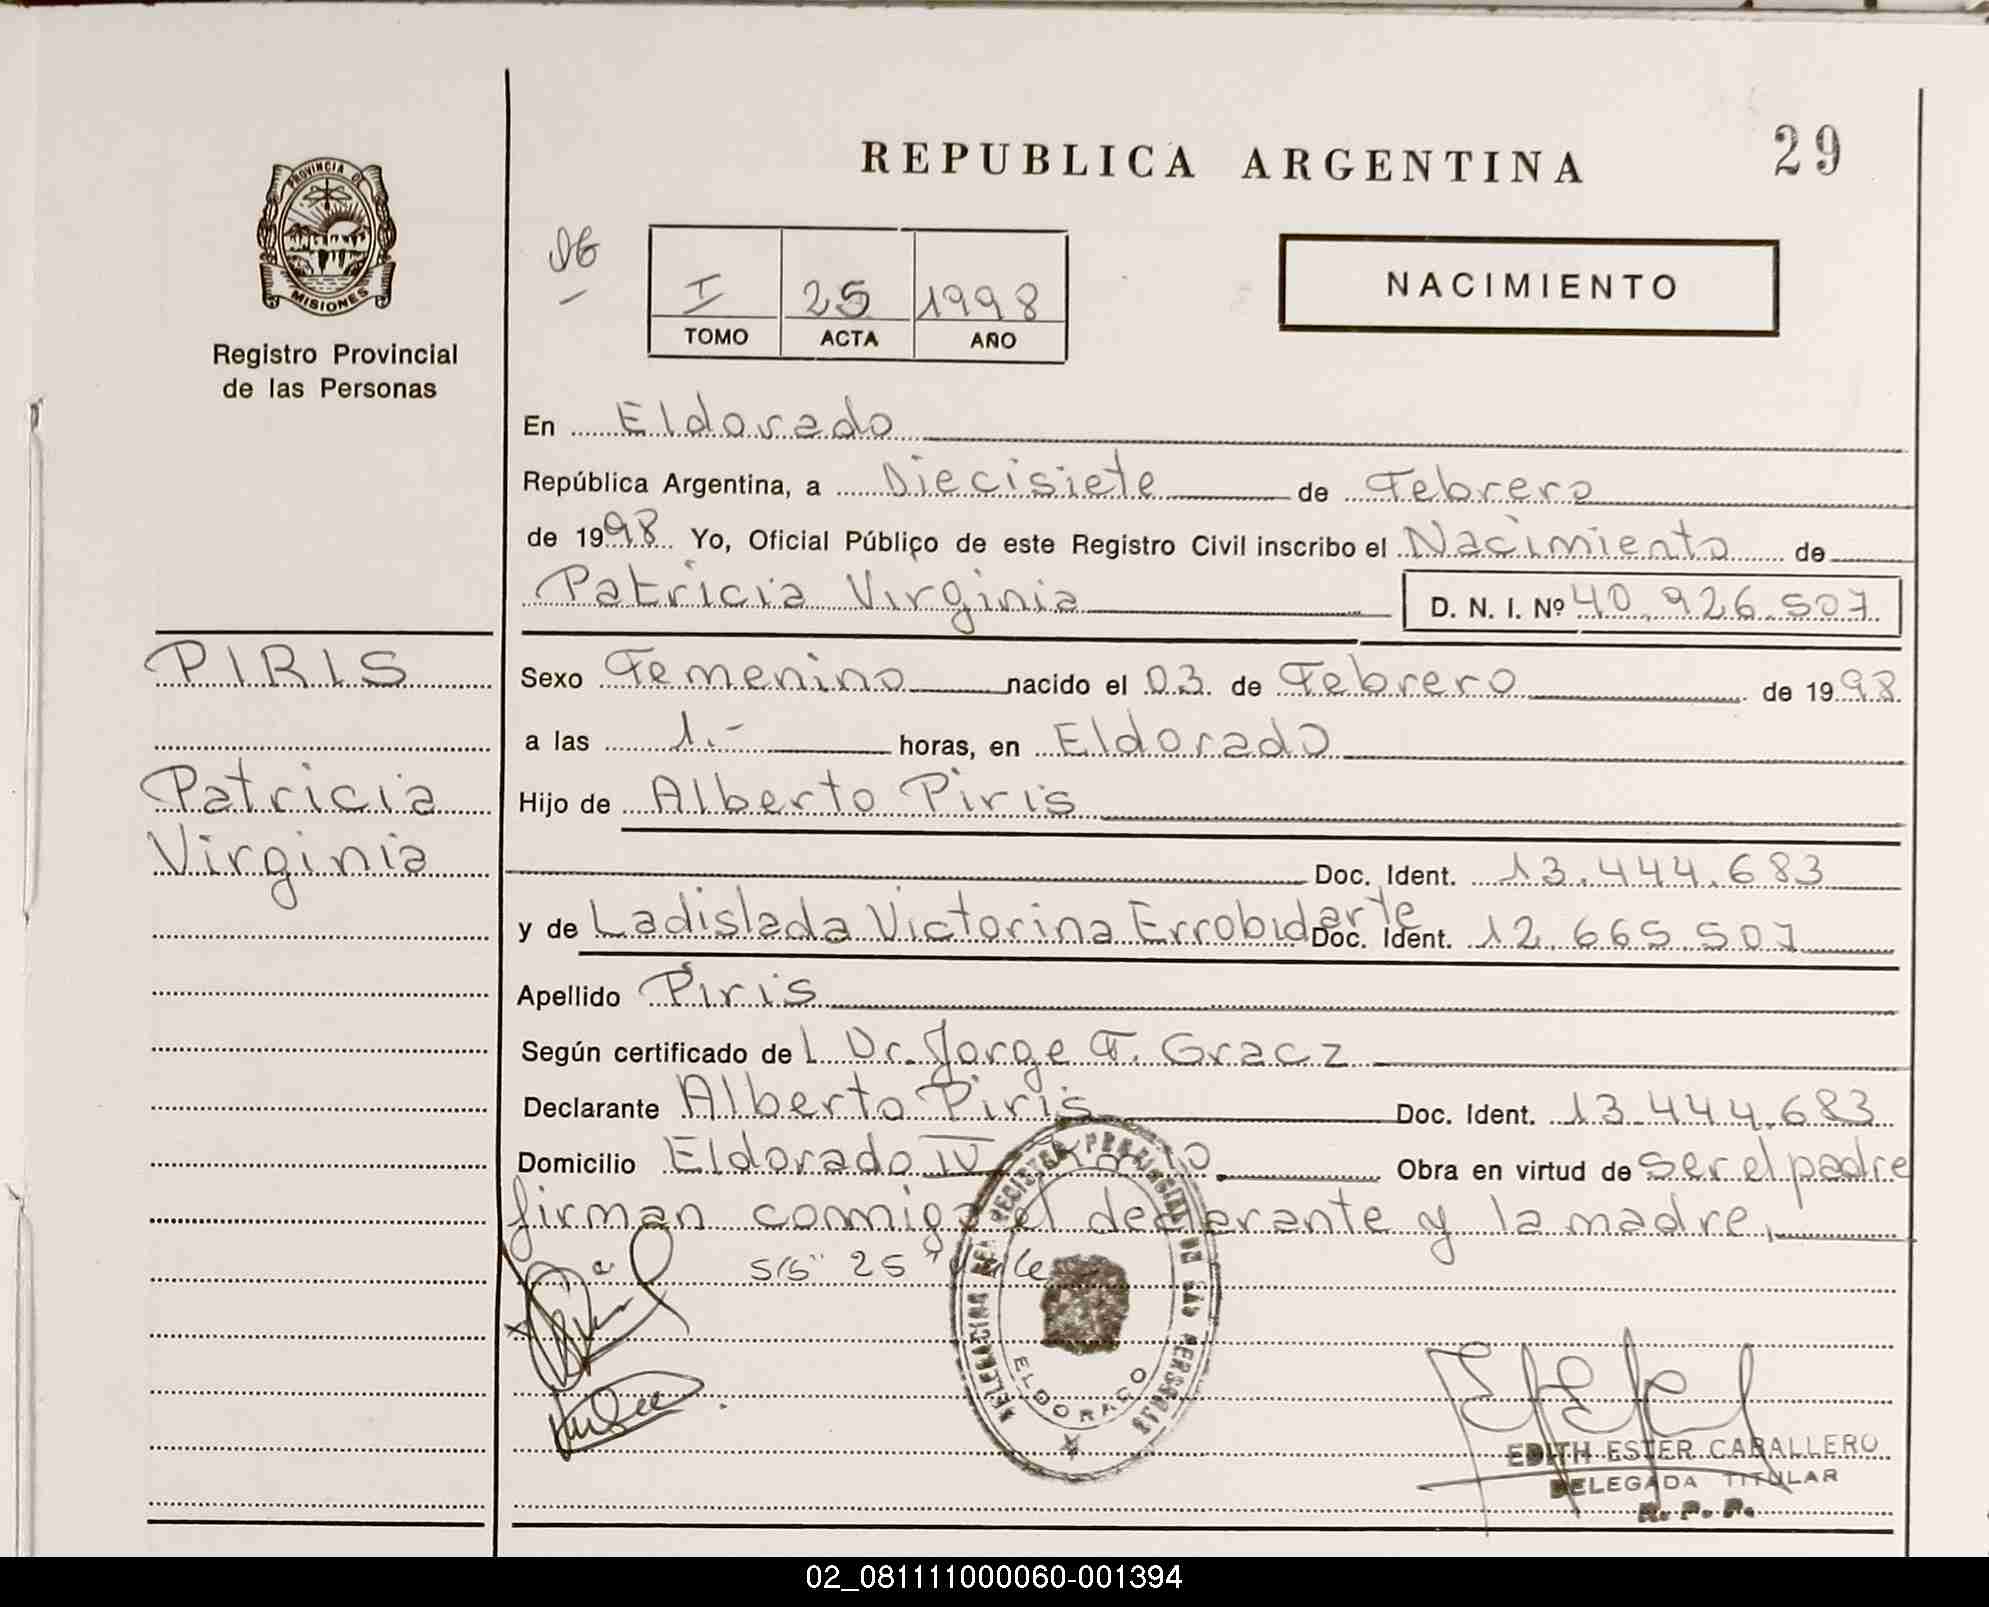 REPUBLICA ARGENTINA
29
PROVINCIA DE
MISIONES
Registro Provincial
de las Personas
I 25 1998
TOMO ACTA AÑO
NACIMIENTO
En Eldorado
República Argentina, a Diecisiete de Febrero
de 1998 Yo, Oficial Público de este Registro Civil inscribo el Nacimiento de
Patricia Virginia D. N. I. Nº 40.926.507
PIRIS
Patricia
Virginia
Sexo Femenino nacido el 03 de Febrero de 1998
a las 1.- horas, en Eldorado
Hijo de Alberto Piris
Doc. Ident. 13.444.683
y de Ladislada Victorina Errobidarte Doc. Ident. 12.665.507
Apellido Piris
Según certificado de l Dr. Jorge F. Gracz
Declarante Alberto Piris Doc. Ident. 13.444.683
Domicilio Eldorado IV Km 10 Obra en virtud de ser el padre
firman conmigo el declarante y la madre.
S/b" 25 "Vale
DELEGACION DEL REGISTRO PROVINCIAL DE LAS PERSONAS
ELDORADO
EDITH ESTER CABALLERO
DELEGADA TITULAR
R. P. P.
02_081111000060-001394